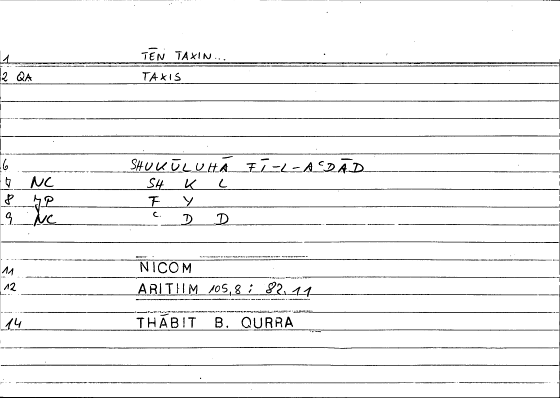 1 TĒN TAXIN...
2 QA TAXIS
6 SHUKŪLUHĀ FĪ-L-AᶜDĀD
7 NC SH K L
8 7P F Y
9 NC ᶜ D D
11 NICOM
12 ARITIIM 105,8 : 82.11
14 THĀBIT B. QURRA